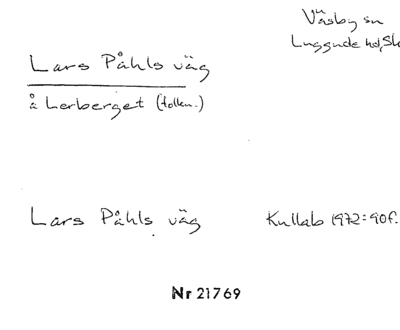 Väsby sn
Luggude hd, Sk
Lars Påhls väg
å Lerberget (folkm.)
Lars Påhls väg
Kullab 1972:90f.
Nr 21769